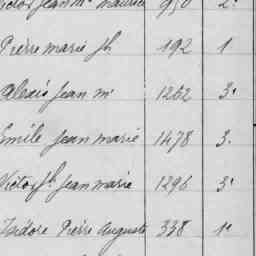 Victor Jean Mie Maurice 950 2e
Pierre marie fs 192 1
Alexis Jean m. 1262 3e
Emile Jean marie 1478 3.
Victor fs Jean marie 1296 3e
Isidore Pierre Auguste 338 1e